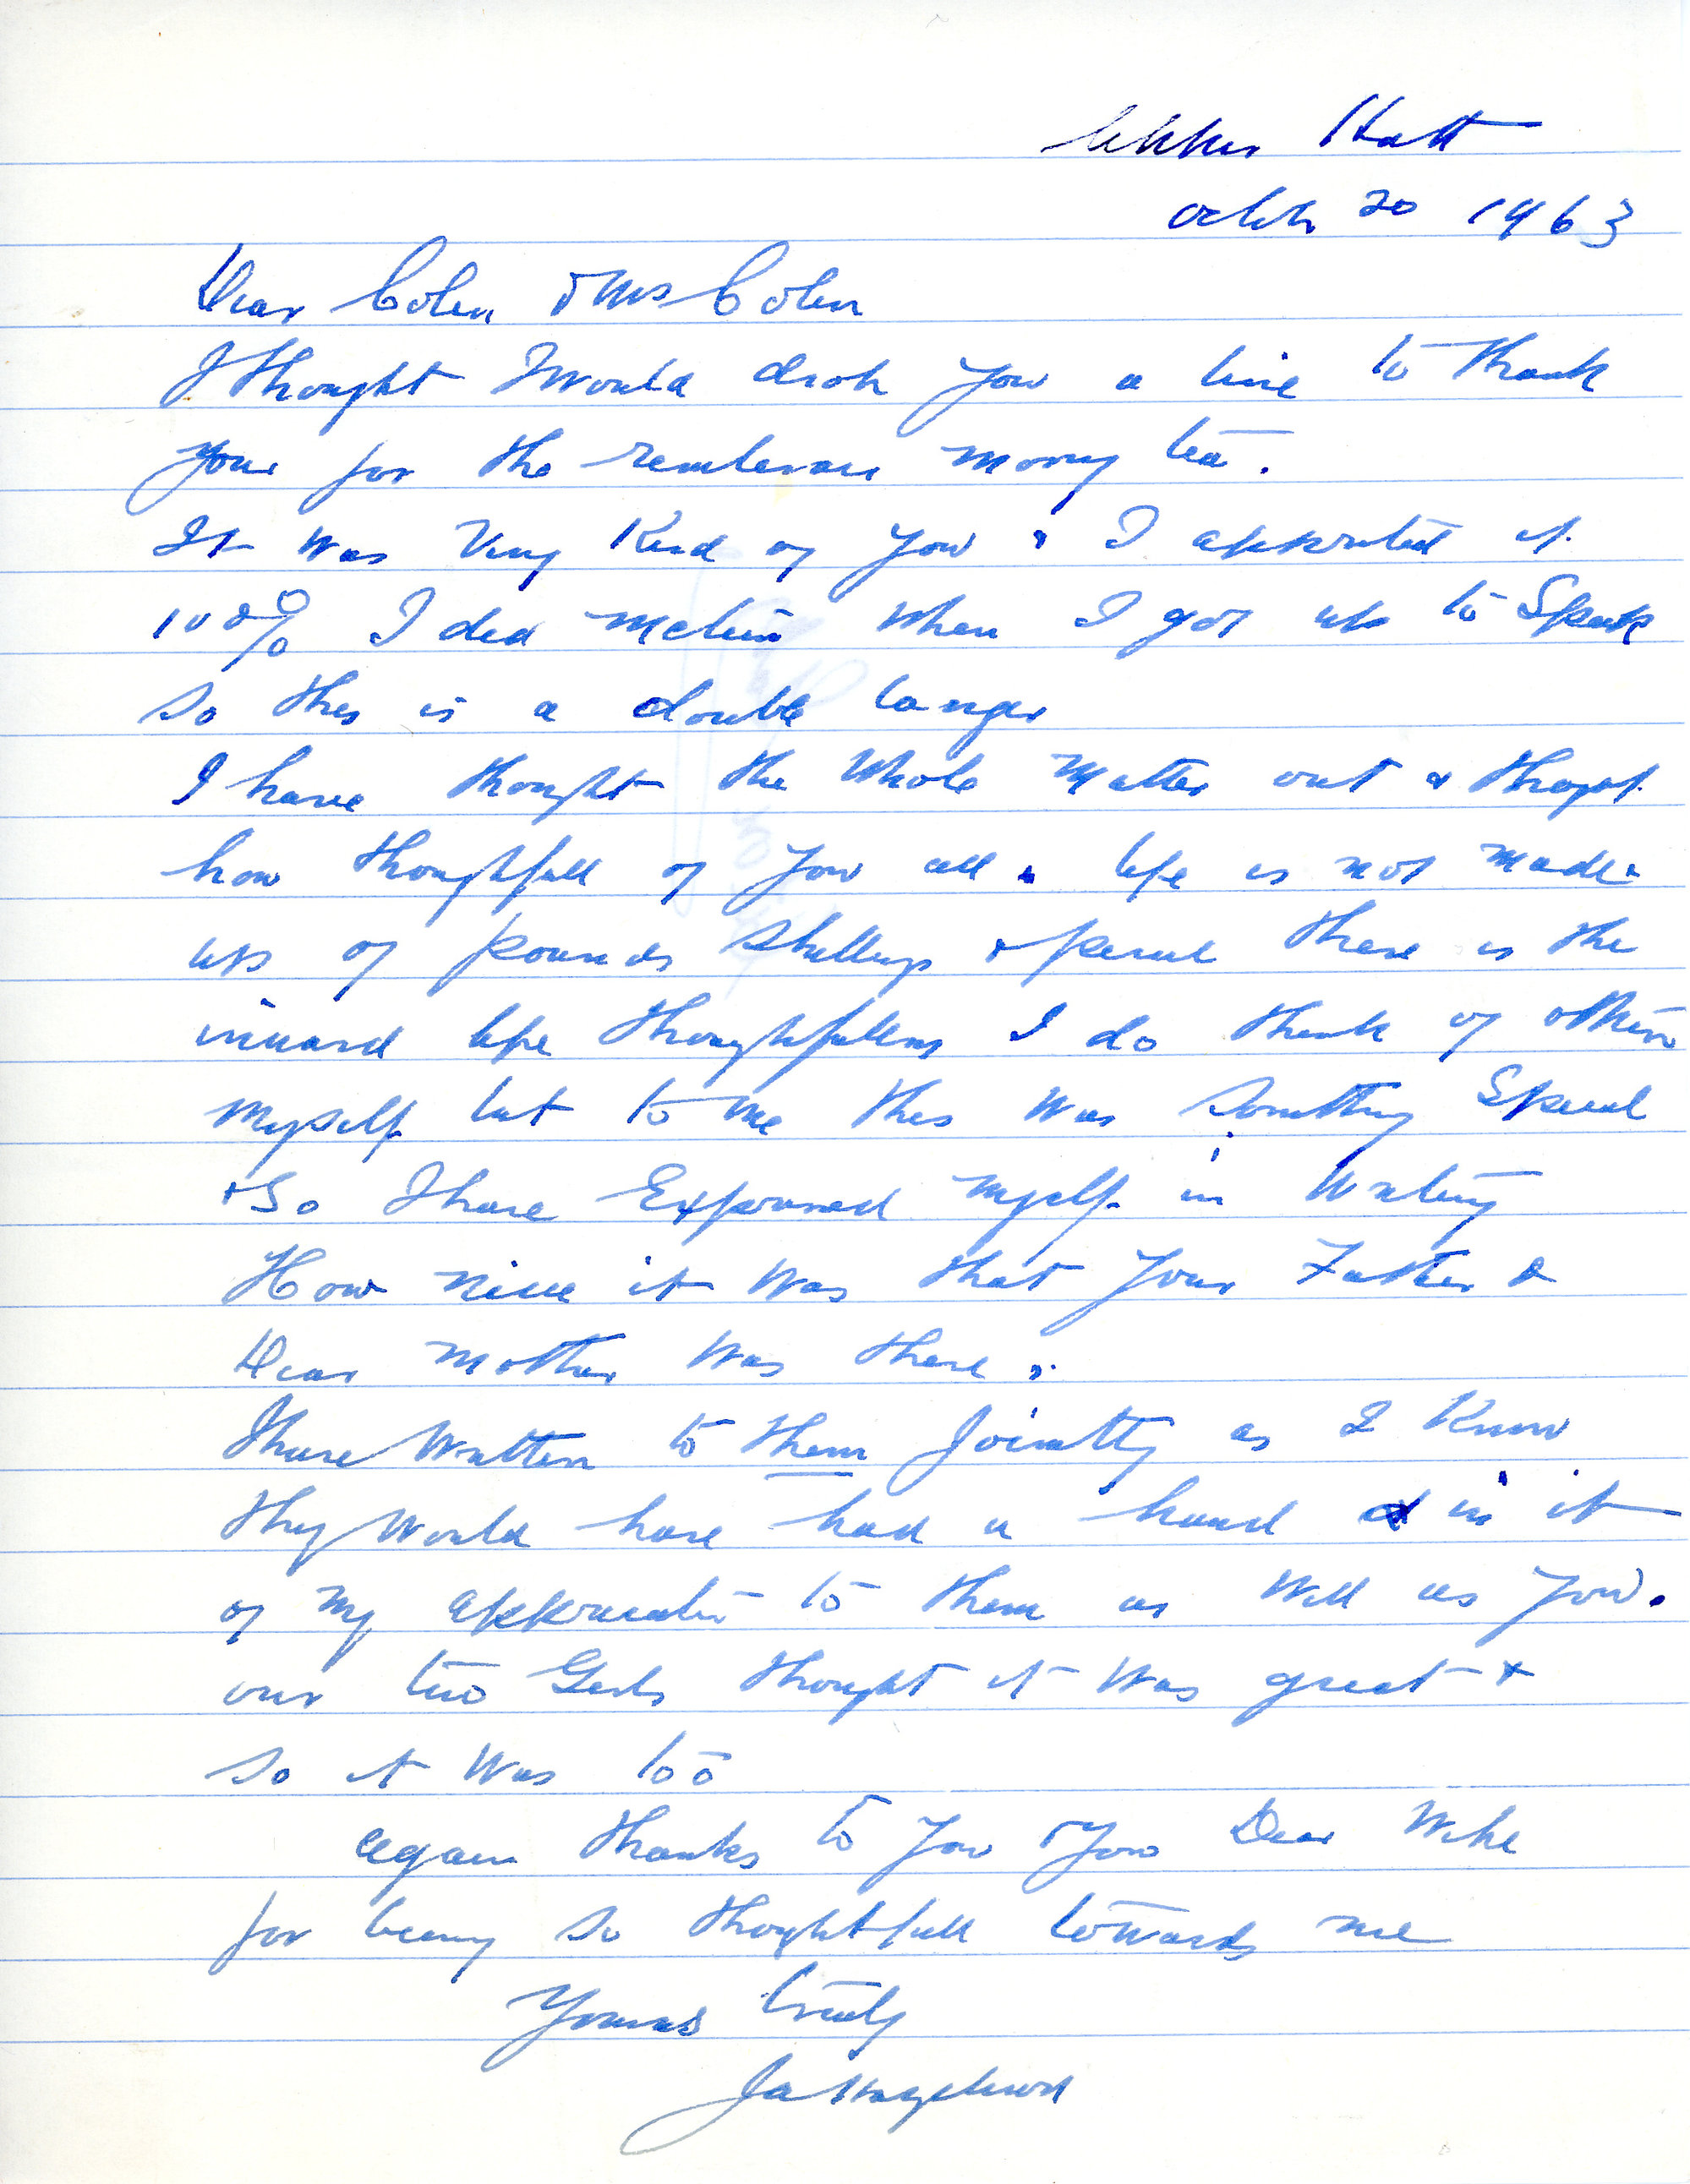 Upper Hutt
20 1963
Dear Colin & Mrs Colin
I thought I would drop you a line to thank
you for the morning tea.
It was Very Kind of you & I it
100% I did when I got up to Speak
so this is a double banger
I have thought the Whole Matter out & thought
how thoughtfull of you all. life is not made
up of pounds Shillings & pence there is the
inward life thoughtfullness I do think of others
myself but to me this was Something Special
& So I have Expressed myself in Writing
How nice it was that your Father &
Dear mother was there.
I have Written to them Jointly as I Know
they would have had a hand in it
of my to them as Well as you.
our two Girls thought it was great &
so it was too
again thanks to you & your Dear Wife
for being so thoughtfull towards me
Yours truly